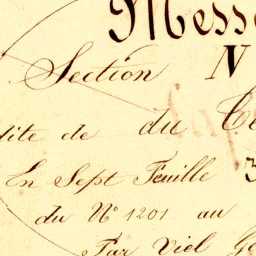 Section N
dite de du
En Sept Feuille 3
du N° 1201 au
Par Viel